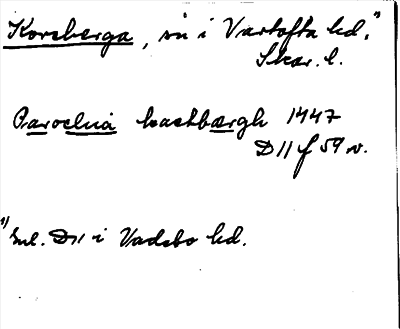 Korsberga, sn i Vartofta hd.¹⁾
Skar. l.
Parochia kastbærgh 1447
D 11 f 59 v.
¹⁾ Enl. D 11 i Vadsbo hd.